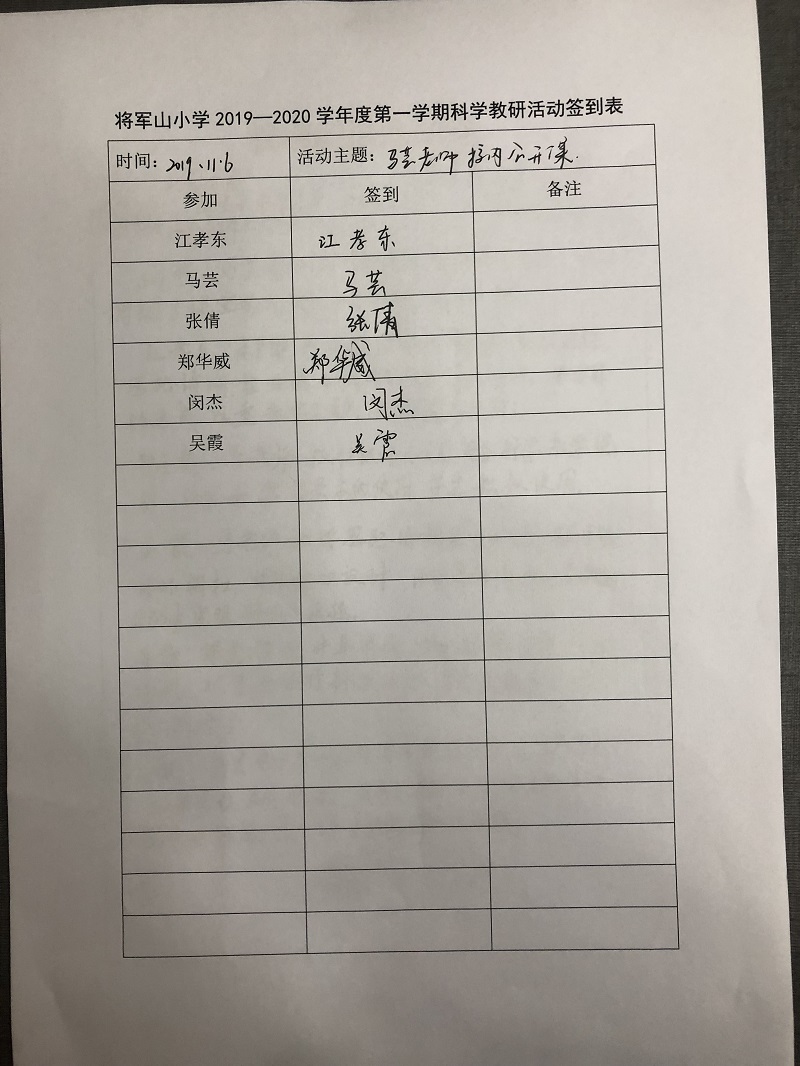 将军山小学2019—2020学年度第一学期科学教研活动签到表
时间：2019.11.6 活动主题：马芸老师校内公开课.
参加 签到 备注
江孝东 江孝东
马芸 马芸
张倩 张倩
郑华威 郑华威
闵杰 闵杰
吴霞 吴霞